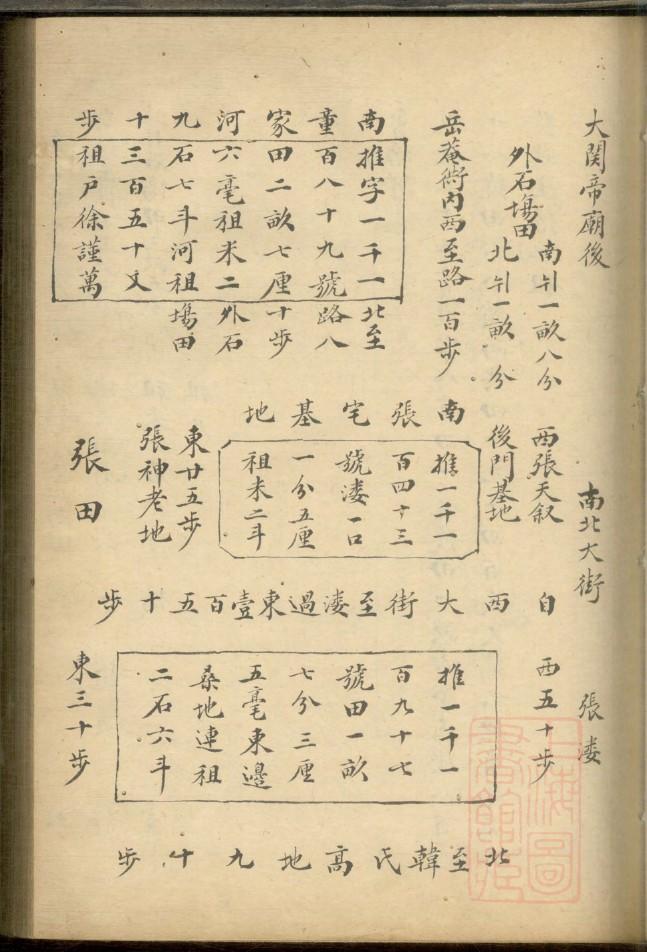 大関帝廟後
南北大街
張漊
外石塲田
南𠃔一畝八分
北𠃔一畝　分
西張天叙
後門基地
西五十步
岳菴衖内西至路一百步
南童家河九十步
推字一千一
百八十九號
田二畝七厘
六毫祖米二
石七斗河祖
三百五十文
祖戶徐謹萬
北至
路八
十步
外石
塲田
南張宅基地
推一千一
百四十三
號漊一口
一分五厘
祖米二斗
東廿五步
張神老地
張田
自西大街至漊過東壹百五十步
推一千一
百九十七
號田一畝
七分三厘
五毫東邉
桑地連祖
二石六斗
東三十步
北至韓氏高地九十步
上海圖書館藏